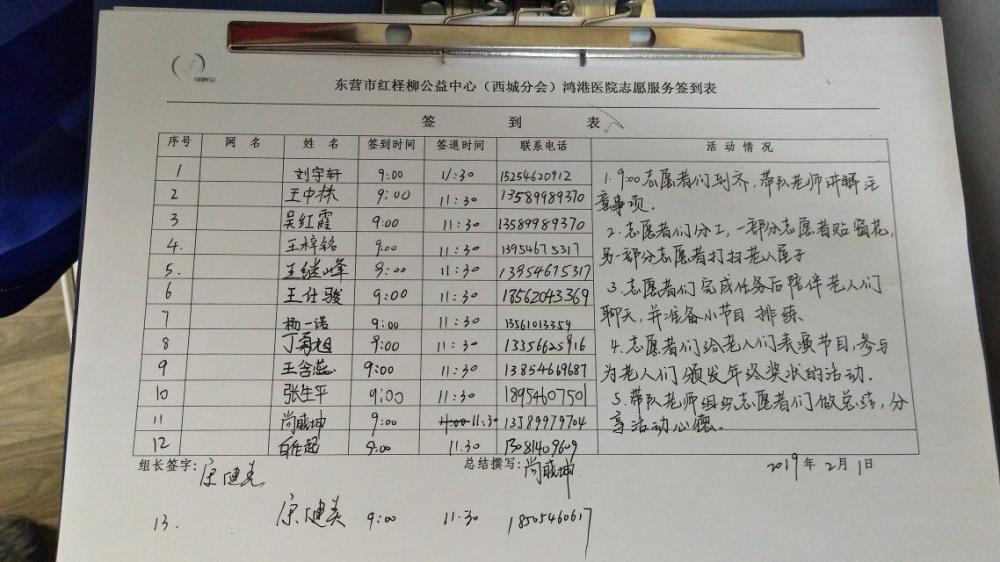 东营市红柽柳公益中心（西城分会）鸿港医院志愿服务签到表
签 到 表
序号 网 名 姓 名 签到时间 签退时间 联系电话 活 动 情 况
1 刘宇轩 9:00 11:30 15254620912
2 王中林 9:00 11:30 13589989370
3 吴红霞 9:00 11:30 13589989370
4. 王梓铭 9:00 11:30 13954675317
5. 王继峰 9:00 11:30 13954675317
6 王仕骏 9:00 11:30 18562043369
7 杨一诺 9:00 11:30 13561013359
8 丁勇旭 9:00 11:30 13356625916
9 王含蕊 9:00 11:30 13854669687
10 张生平 9:00 11:30 1895460750
11 尚 坤 9:00 11:30 13589979704
12 9:00 11.30 13081409609
1. 900志愿者们到齐，带队老师讲解注
意事项.
2. 志愿者们分工，一部分志愿者贴窗花，
另一部分志愿者打扫老人屋子
3. 志愿者们完成任务后陪伴老人们
聊天，并准备小节目 排练.
4. 志愿者们给老人们表演节目，参与
为老人们颁发年终奖状的活动.
5. 带队老师组织志愿者们做总结，分
享活动心德.
组长签字： 总结撰写：尚 坤 2019年2月1日
13. 9:00 11.30 18505460617